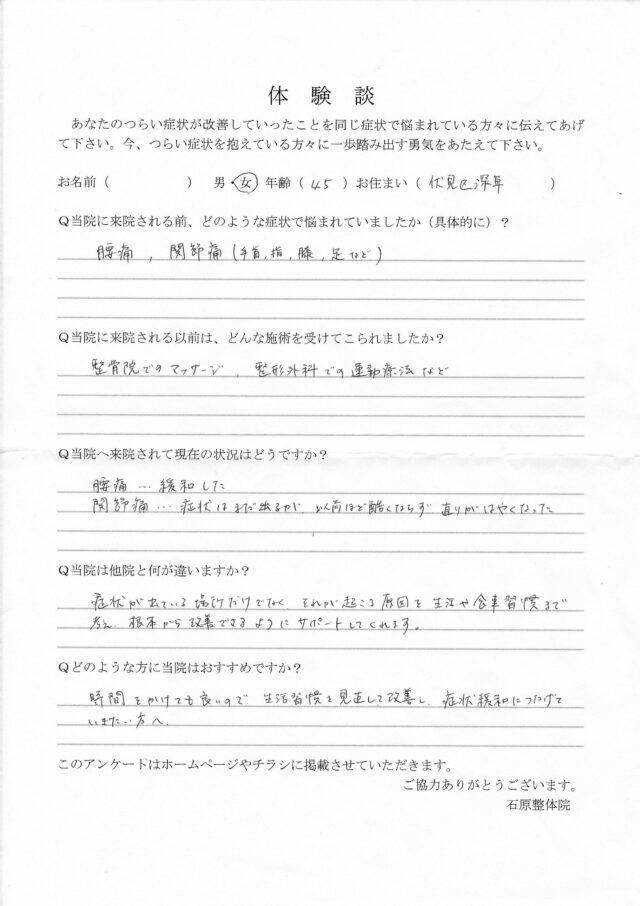 体 験 談
あなたのつらい症状が改善していったことを同じ症状で悩まれている方々に伝えてあげ
て下さい。今、つらい症状を抱えている方々に一歩踏み出す勇気をあたえて下さい。
お名前（　　　　　　）　男・女 年齢（ 45 ）お住まい（ 伏見区深草　　　）
Ｑ当院に来院される前、どのような症状で悩まれていましたか（具体的に）？
腰痛 , 関節痛 (手首, 指, 膝, 足など)
Ｑ当院に来院される以前は、どんな施術を受けてこられましたか？
整骨院でのマッサージ , 整形外科での運動療法など
Ｑ当院へ来院されて現在の状況はどうですか？
腰痛 … 緩和した
関節痛 … 症状はまだ出るが、以前ほど酷くならず 直りがはやくなった
Ｑ当院は他院と何が違いますか？
症状が出ている場所だけでなく それが起こる原因を生活や食事習慣まで
考え 根本から改善できるようにサポートしてくれます。
Ｑどのような方に当院はおすすめですか？
時間をかけても良いので 生活習慣を見直して改善し、症状緩和につなげて
いきたい方へ
このアンケートはホームページやチラシに掲載させていただきます。
ご協力ありがとうございます。
石原整体院